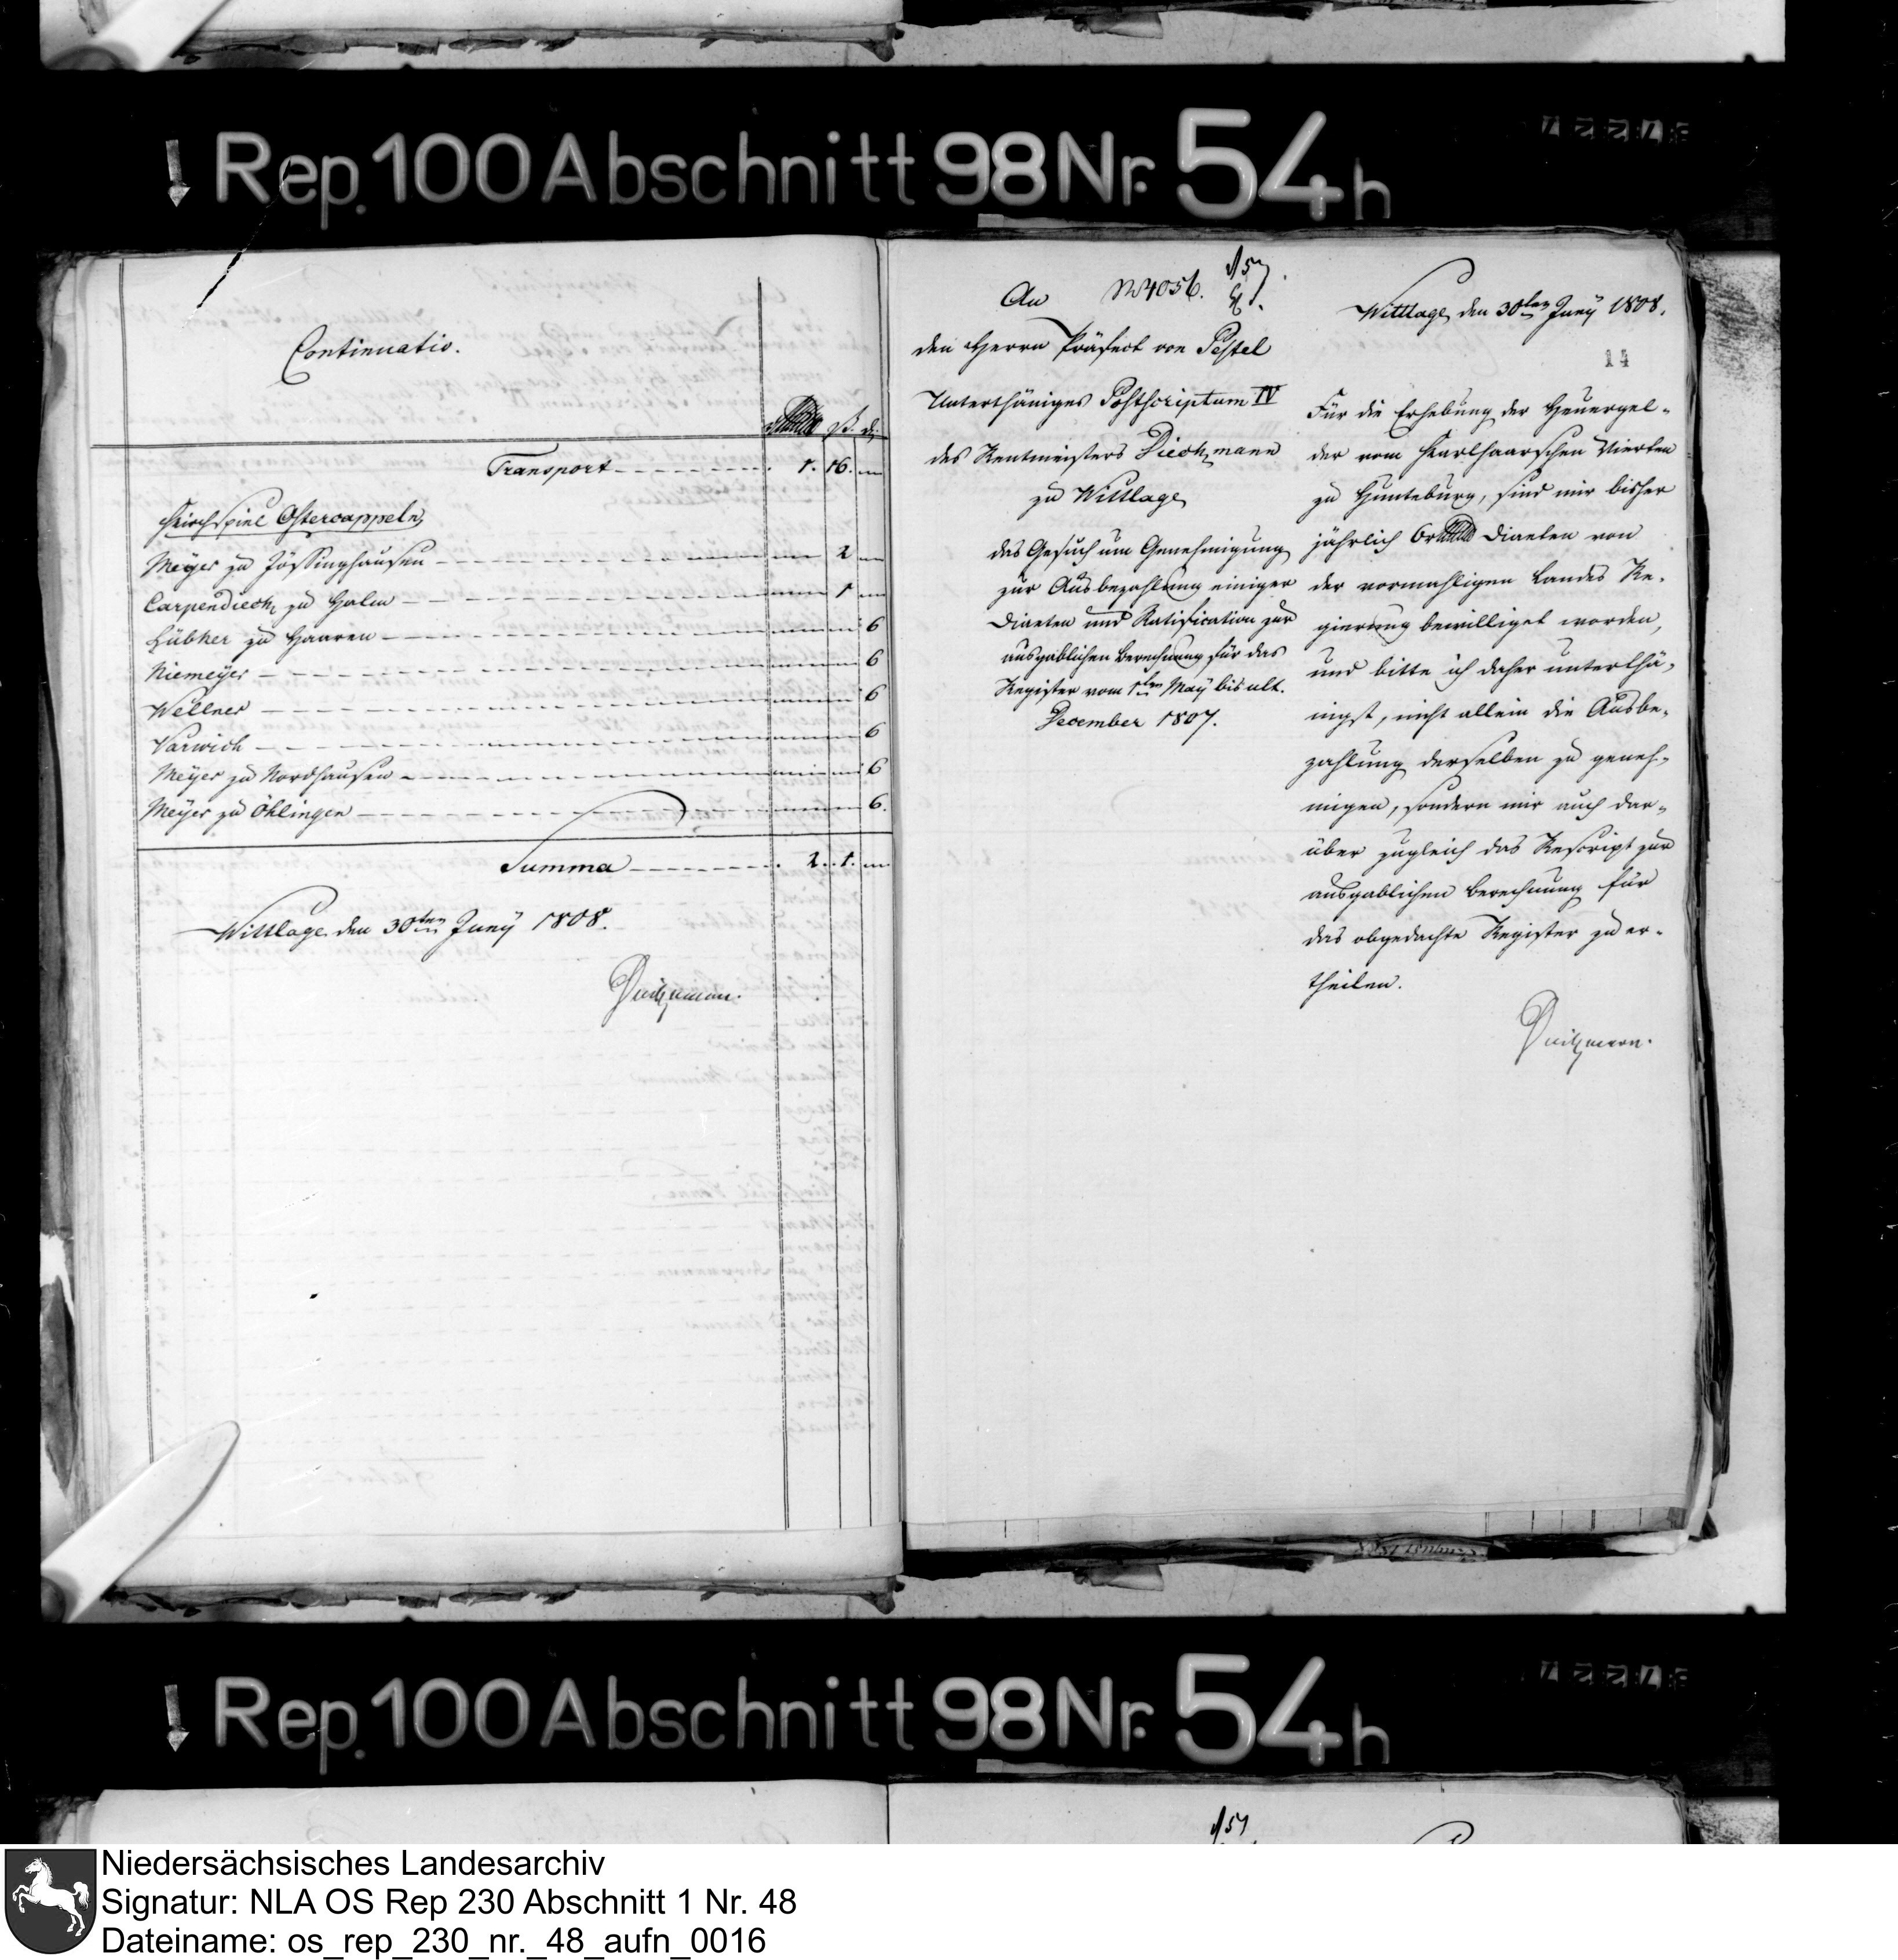 Rep. 100 Abschnitt 98 Nr. 54 h
Continuatio.
ß. d.
Transport 1. 16. —
Kirchspiel Ostercappeln
Meyer zu Jössinghausen — 2 —
Carpendieck zu Halm — 1 —
Lübker zu Haaren — — 6
Niemeyer — — 6
Wellner — — 6
Varwick — — 6
Meyer zu Nordhausen — — 6
Meyer zu Öhlingen — — 6.
Summa 2. 1. —
Wittlage den 30ten Juny 1808.
Dieckmann.
An
N 4056.
den Herrn Präfect von Pestel
Unterthäniges Postscriptum IV
des Rentmeisters Dieckmann
zu Wittlage
das Gesuch um Genehmigung
zur Ausbezahlung einiger
Diaeten und Ratification zur
ausgablichen Berechnung für das
Register vom 1ten May bis ult.
December 1807.
Wittlage, den 30ten Juny 1808.
14
Für die Erhebung der Heuergel-
der vom Karlhaarschen Vierten
zu Hunteburg, sind mir bisher
jährlich 6 Diaeten von
der vormahligen Landes Re-
gierung bewilliget worden,
und bitte ich daher unterthä-
nigst, nicht allein die Ausbe-
zahlung derselben zu geneh-
migen, sondern mir auch dar-
über zugleich das Rescript zur
ausgablichen Berechnung für
das obgedachte Register zu er-
theilen.
Dieckmann.
Rep. 100 Abschnitt 98 Nr. 54 h
Niedersächsisches Landesarchiv
Signatur: NLA OS Rep 230 Abschnitt 1 Nr. 48
Dateiname: os_rep_230_nr._48_aufn_0016